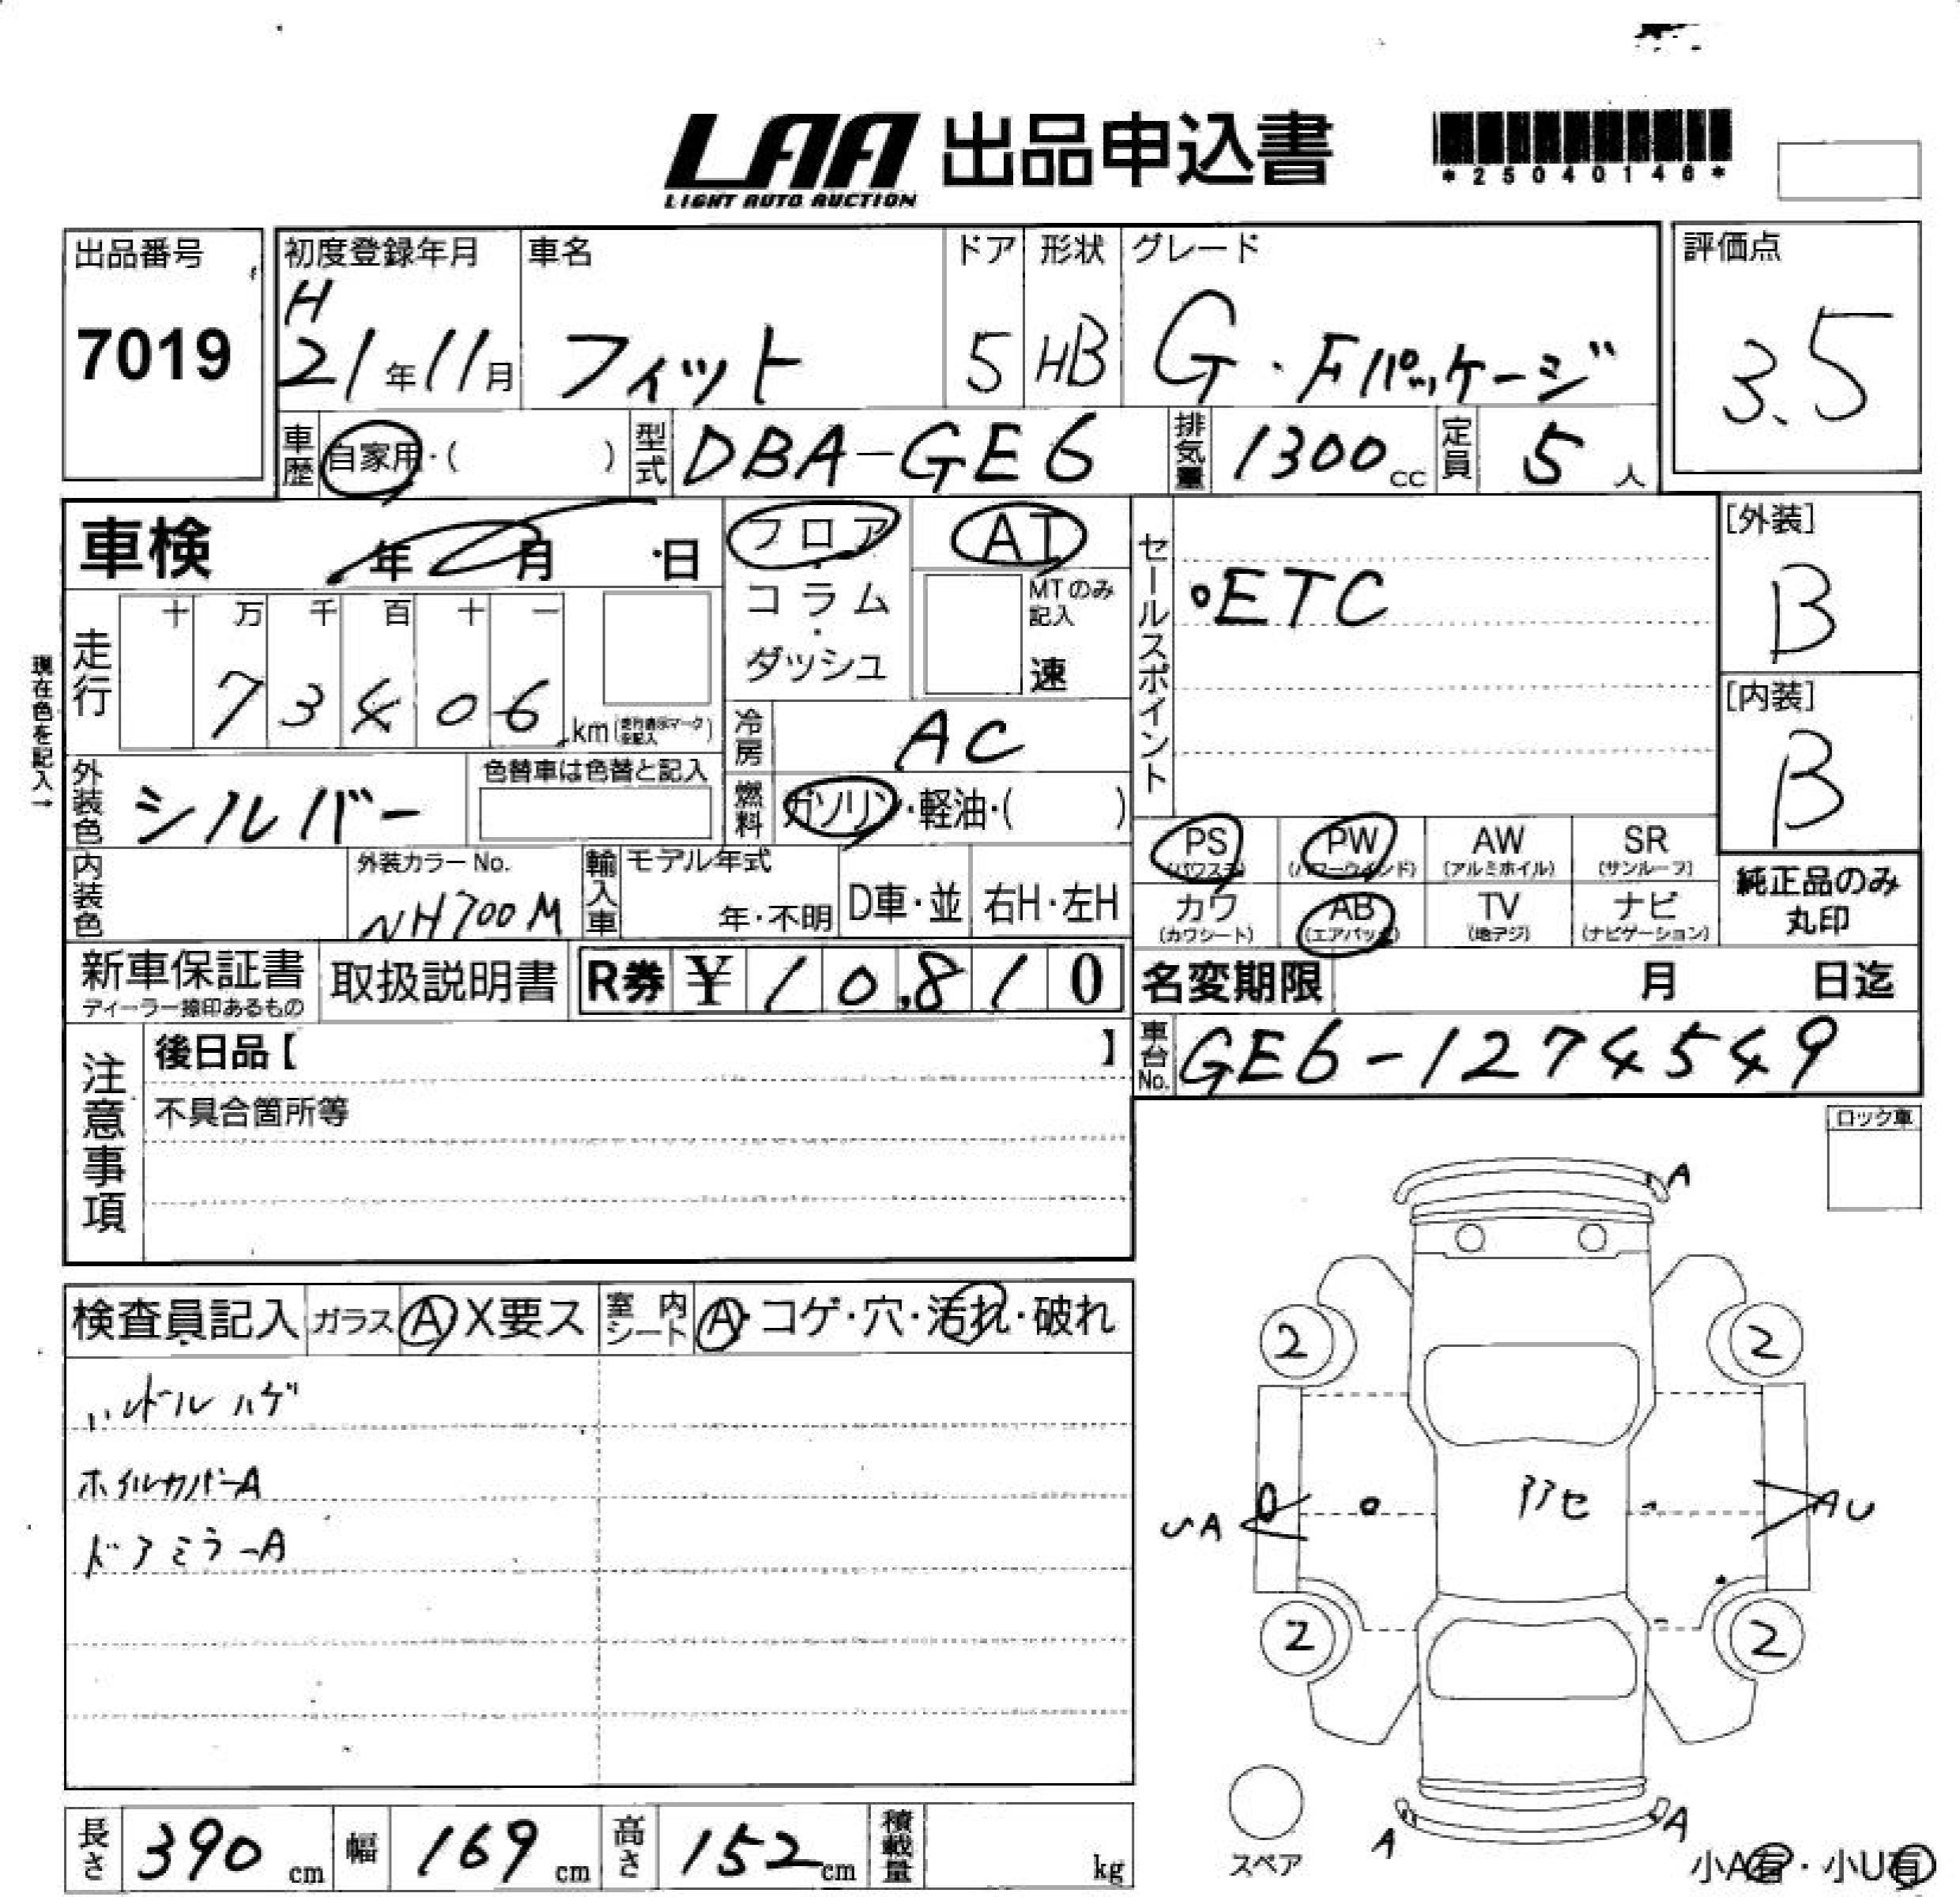 LAA 出品申込書
LIGHT AUTO AUCTION
*25040146*
出品番号
7019
初度登録年月
H
21年11月
車名
フィット
ドア
5
形状
HB
グレード
G・Fパッケージ
評価点
3.5
車歴
自家用・( )
型式
DBA-GE6
排気量
1300cc
定員
5人
車検 年 月 日
フロア
・
コラム
・
ダッシュ
AT
MTのみ
記入
速
セールスポイント
○ETC
[外装]
B
[内装]
B
現在色を記入→
走行
十 万 千 百 十 一
73406 km
冷房
AC
外装色
シルバー
色替車は色替と記入
燃料
ガソリン・軽油・( )
内装色
外装カラーNo.
NH700M
輸入車
モデル年式
年・不明
D車・並
右H・左H
PS
(パワステ)
PW
(パワーウインド)
AW
(アルミホイル)
SR
(サンルーフ)
カワ
(カワシート)
AB
(エアバック)
TV
(地デジ)
ナビ
(ナビゲーション)
純正品のみ
丸印
新車保証書
ディーラー捺印あるもの
取扱説明書
R券 ¥10,810
名変期限 月 日迄
車台No.
GE6-1274549
注意事項
後日品【 】
不具合箇所等
ロック車
検査員記入
ガラス
A X要ス
室内シート
A・コゲ・穴・汚れ・破れ
ハンドルハゲ
ホイルカバーA
ドアミラーA
A
2
2
UA
アセ
AU
2
2
A
A
スペア
小A有・小U有
長さ
390cm
幅
169cm
高さ
152cm
積載量
kg